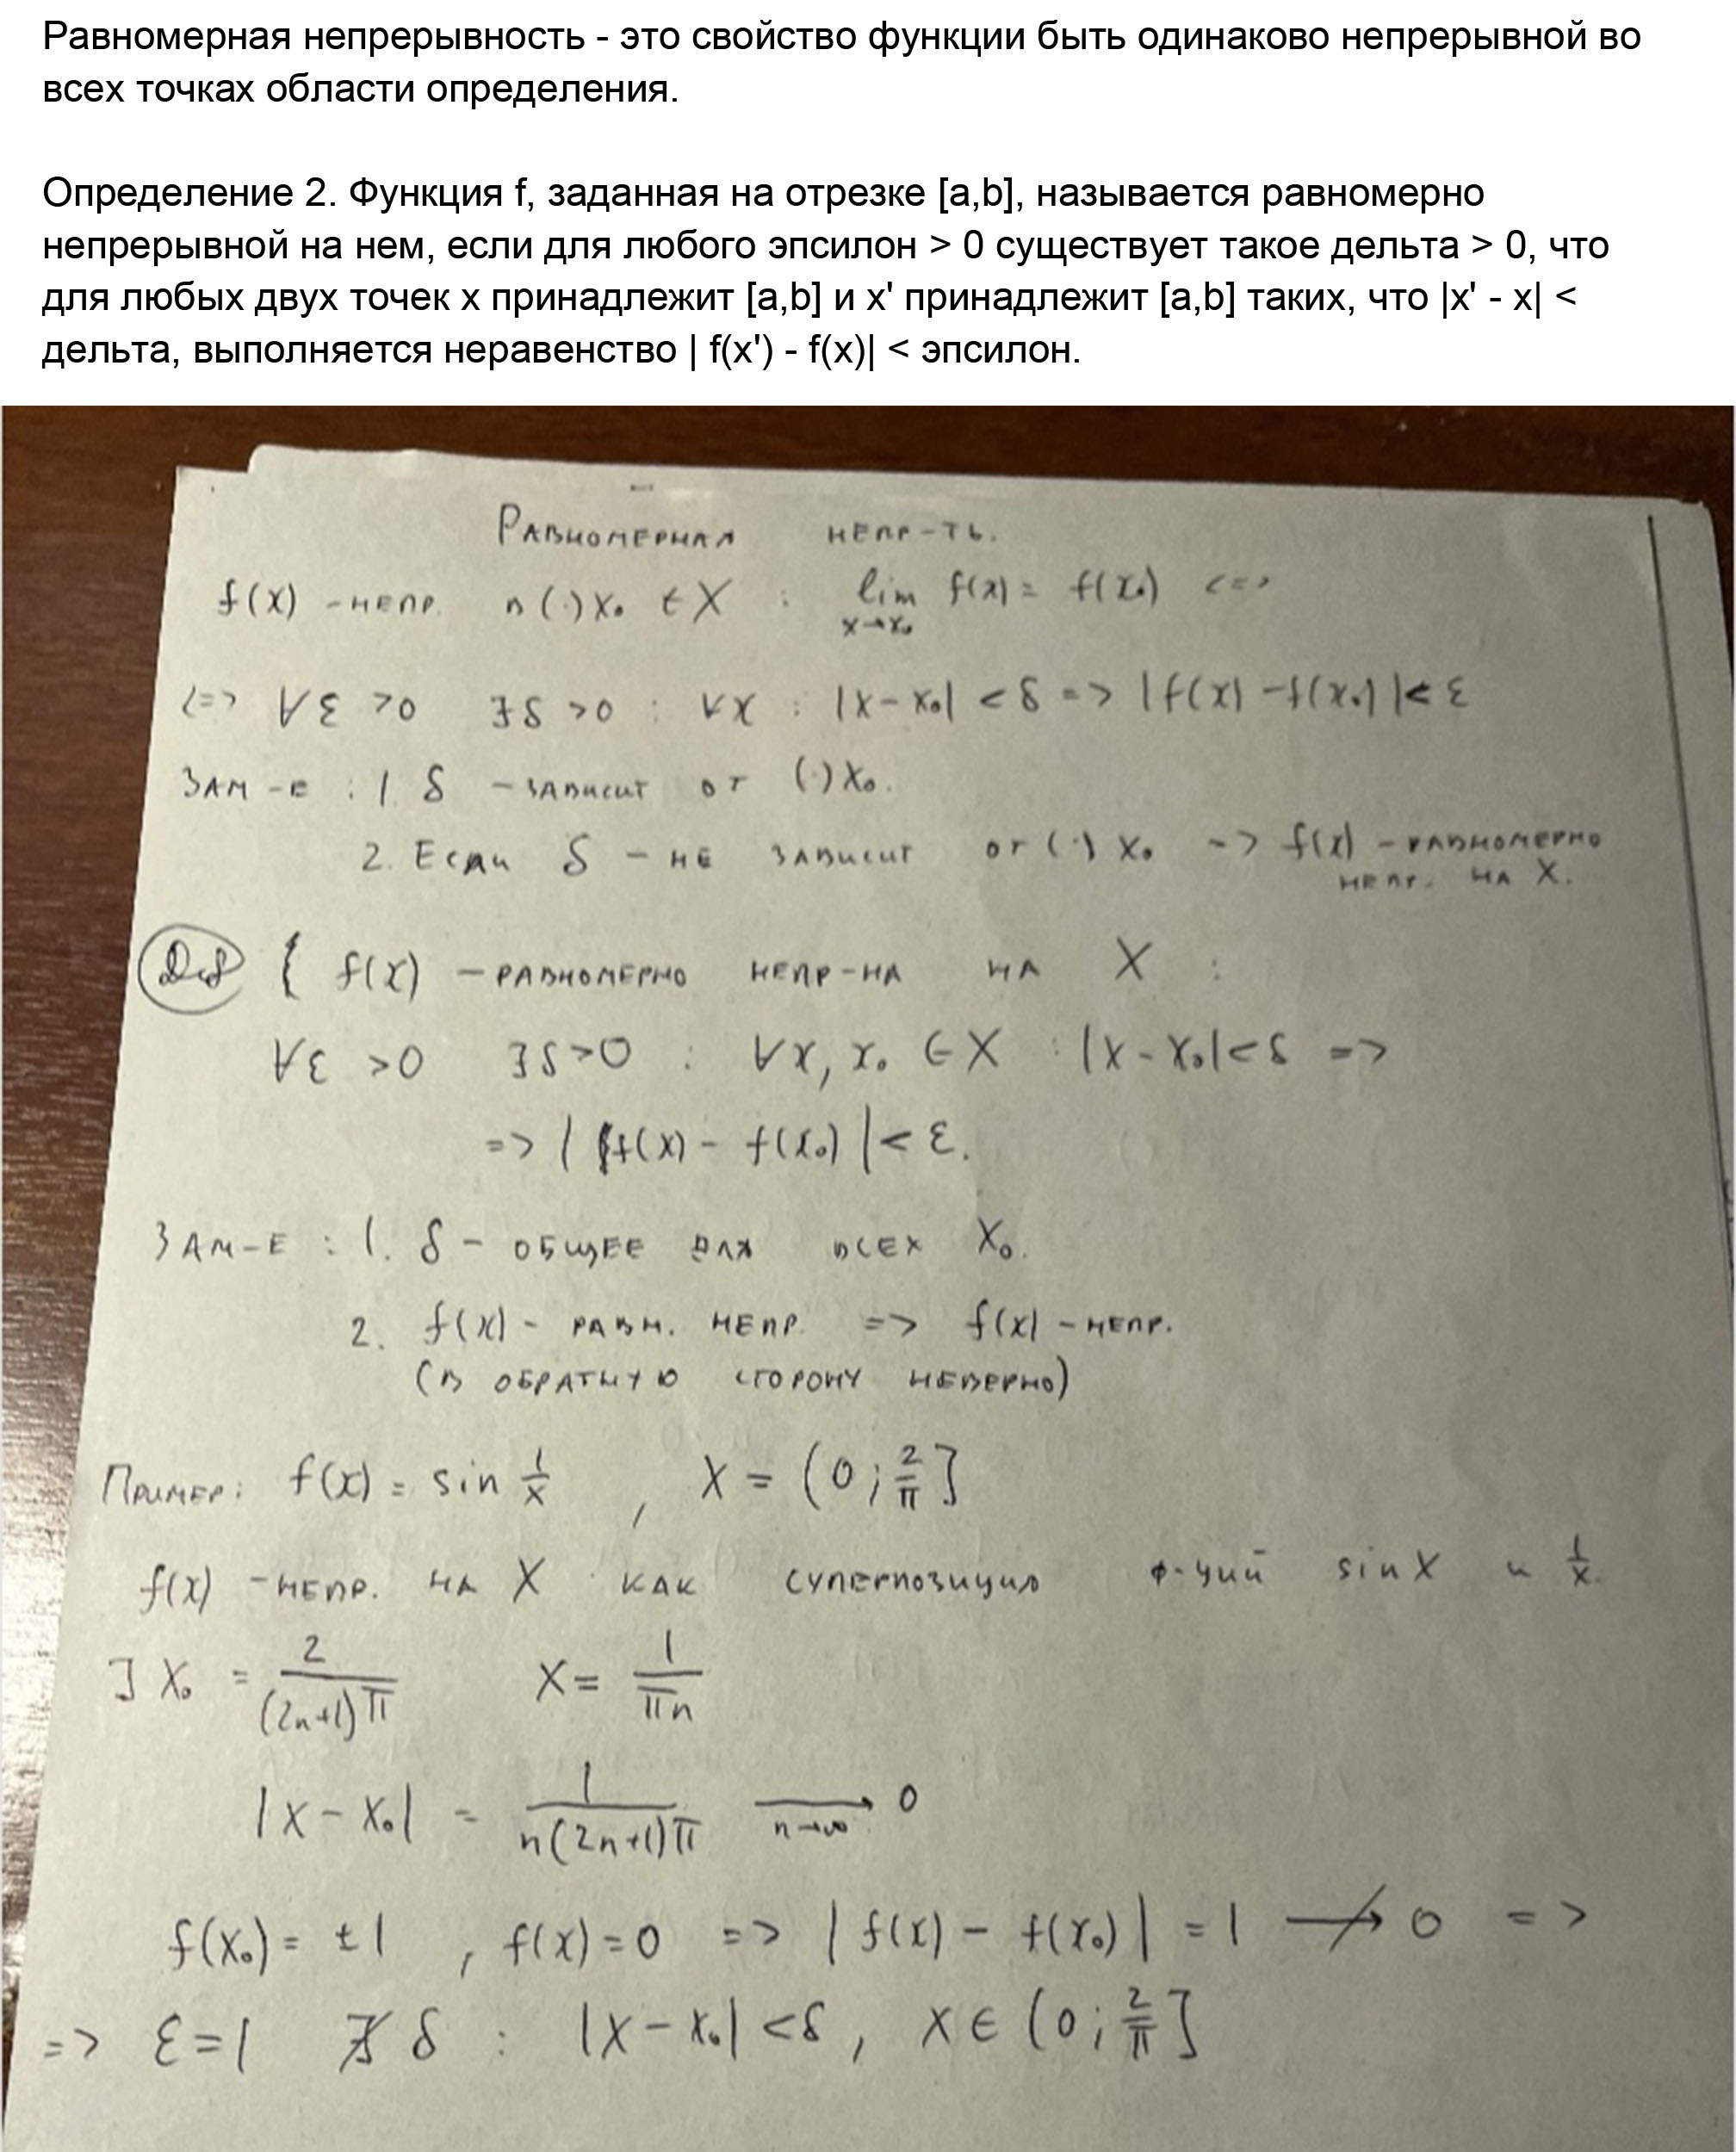 Равномерная непрерывность - это свойство функции быть одинаково непрерывной во
всех точках области определения.
Определение 2. Функция f, заданная на отрезке [a,b], называется равномерно
непрерывной на нем, если для любого эпсилон > 0 существует такое дельта > 0, что
для любых двух точек x принадлежит [a,b] и x' принадлежит [a,b] таких, что |x' - x| <
дельта, выполняется неравенство | f(x') - f(x)| < эпсилон.
Равномерная непр-ть.
f(x) - непр. в (·) x₀ ∈ X : lim f(x) = f(x₀) <=>
x→x₀
<=> ∀ε > 0 ∃δ > 0 : ∀x : |x - x₀| < δ => |f(x) - f(x₀)| < ε
Зам-е : 1. δ - зависит от (·) x₀.
2. Если δ - не зависит от (·) x₀ -> f(x) - равномерно
непр. на X.
Def { f(x) - равномерно непр-на на X :
∀ε > 0 ∃δ > 0 : ∀x, x₀ ∈ X : |x - x₀| < δ =>
=> | f(x) - f(x₀) | < ε.
Зам-е : 1. δ - общее для всех x₀.
2. f(x) - равн. непр. => f(x) - непр.
(в обратную сторону неверно)
Пример: f(x) = sin 1/x , X = (0 ; 2/π]
f(x) - непр. на X как суперпозиция ф-ций sin x и 1/x.
∃ x₀ = 2/((2n+1)π) x = 1/(πn)
|x - x₀| = 1/(n(2n+1)π) → 0
n→∞
f(x₀) = ±1 , f(x) = 0 => | f(x) - f(x₀) | = 1 ↛ 0 =>
=> ε = 1 ∄ δ : |x - x₀| < δ , x ∈ (0 ; 2/π]